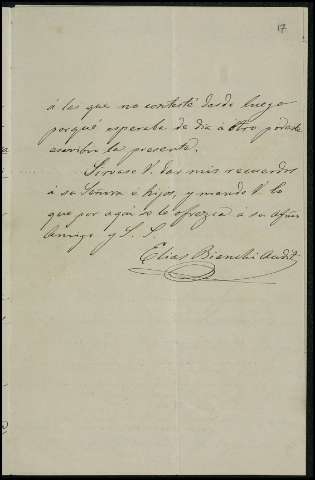 17
á las que no contesté desde luego
porqué esperaba de dia á otro poderle
escribir la presente.
Sirvase V. dar mis recuerdos
á su Señora é hijos, y mande V. lo
que por aqui se le ofrezca a su afmo
Amigo y S. S.
Elias Bianchi